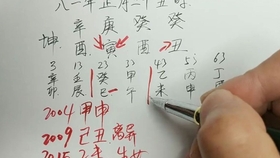 八一年正月二十丑时
辛庚癸癸
坤
酉寅酉丑
3 13 23 33 43 53 63
辛壬癸甲乙丙丁
卯辰巳午未申
2004 甲申
2009 己丑 离异
2015 乙未